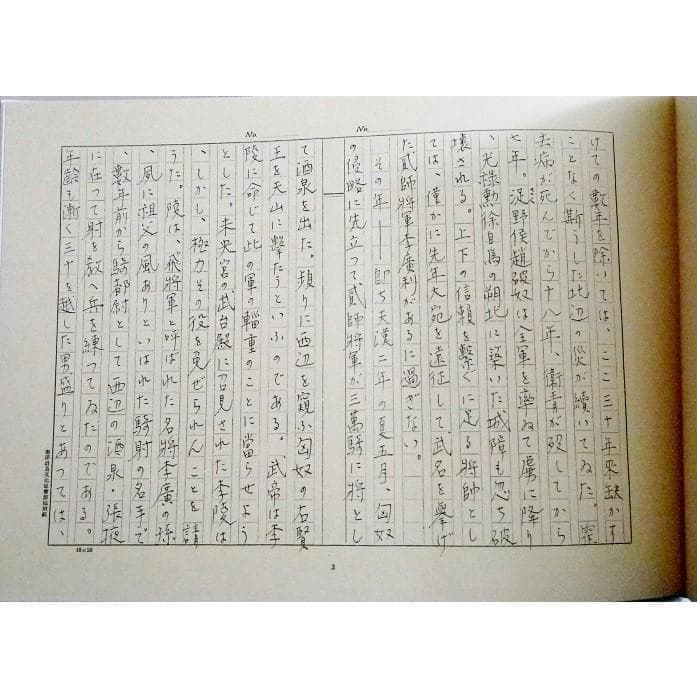 けての數年を除いては、ここ三十年來缺かす
ことなく斯うした北辺の災が續いてゐた。霍
去病が死んでから十八年、衛青が歿してから
七年。浞野侯趙破奴は全軍を率ゐて虜に降り
、光祿勳徐自爲の朔北に築いた城障も忽ち破
壞される。上下の信頼を繋ぐに足る將帥とし
ては、僅かに先年大宛を遠征して、武名を擧げ
た貳師將軍李廣利があるに過ぎない。
その年――即ち天漢二年の夏五月、匈奴
の侵略に先立つて貳師將軍が三萬騎に將とし
て酒泉を出た。頻りに西辺を窺ふ匈奴の右賢
王を天山に擊たうといふのである。武帝は李
陵に命じて此の軍の輜重のことに當らせよう
とした。未央宮の武台殿に召見された李陵は
、しかし、極力その役を免ぜられんことを請
うた。陵は、飛將軍と呼ばれた名將李廣の孫
、夙に祖父の風ありといはれた騎射の名手で
、數年前から騎都尉として西辺の酒泉・張掖
に在つて射を敎へ兵を練つてゐたのである。
年齡も漸く三十を越した男盛りとあつては、
No.
No.
10×20
3